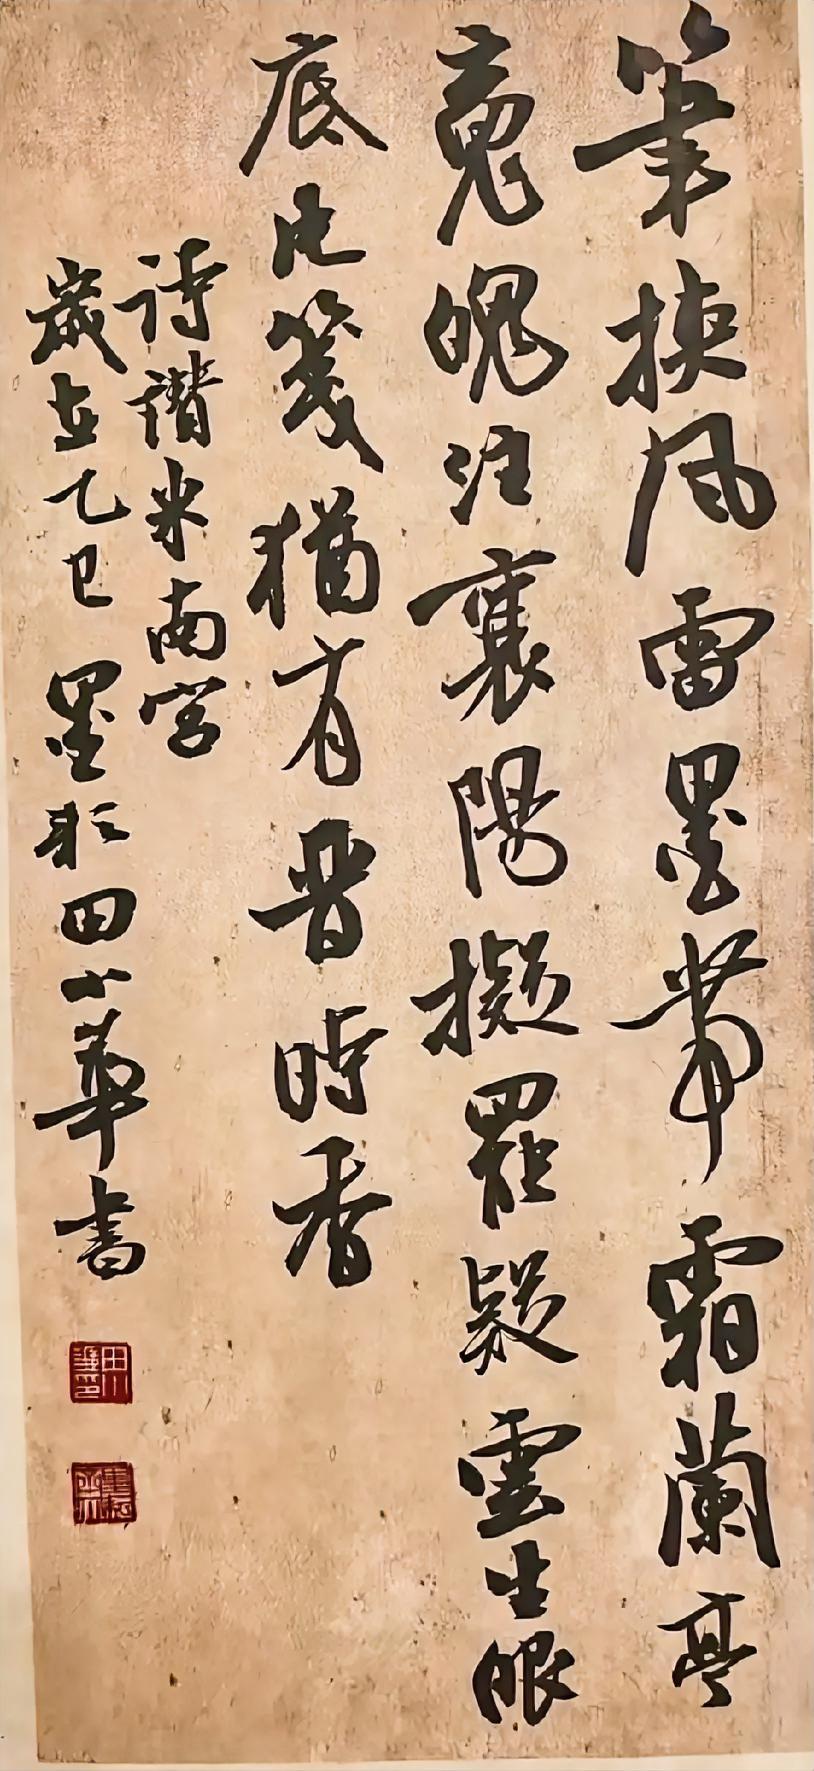 筆挾風雷墨帶霜蘭亭
竟魄注襄陽擬罷疑雲生眼
底此箋猶有晋時香
詩譛米南宮
歲在乙巳墨耘田小華書